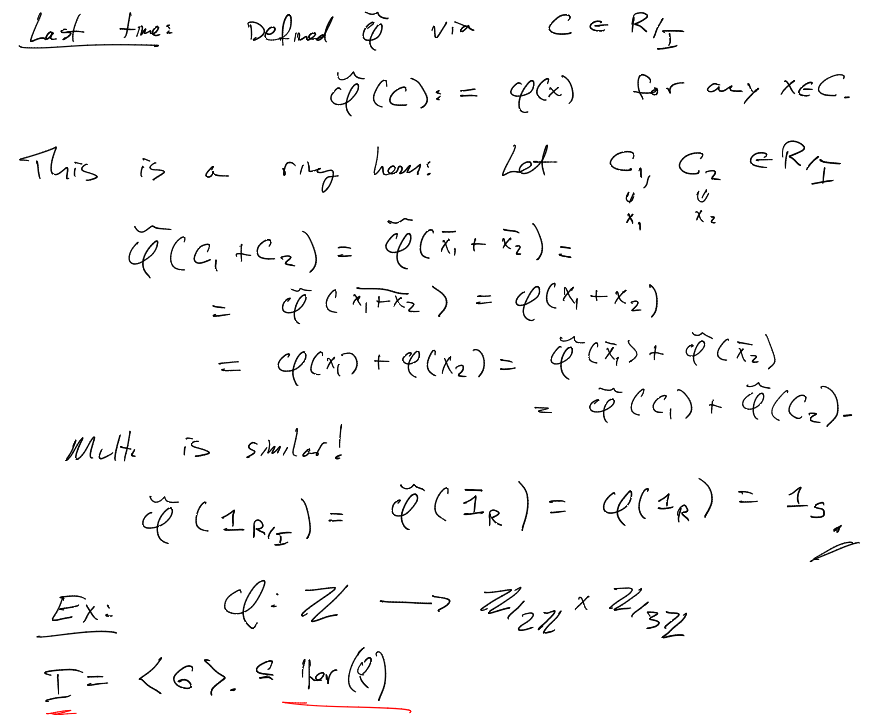 Last time: Defined φ̃ via C ∈ R/I
φ̃(C) := φ(x) for any x∈C.
This is a ring hom: Let C₁, C₂ ∈ R/I
x₁ x₂
φ̃(C₁ + C₂) = φ̃(x̄₁ + x̄₂) =
= φ̃(\overline{x₁+x₂}) = φ(x₁ + x₂)
= φ(x₁) + φ(x₂) = φ̃(x̄₁) + φ̃(x̄₂)
= φ̃(C₁) + φ̃(C₂).
Mult. is similar!
φ̃(1_{R/I}) = φ̃(1̄_R) = φ(1_R) = 1_S.
Ex: φ: ℤ → ℤ/2ℤ × ℤ/3ℤ
I = <6>. ⊆ ker(φ)